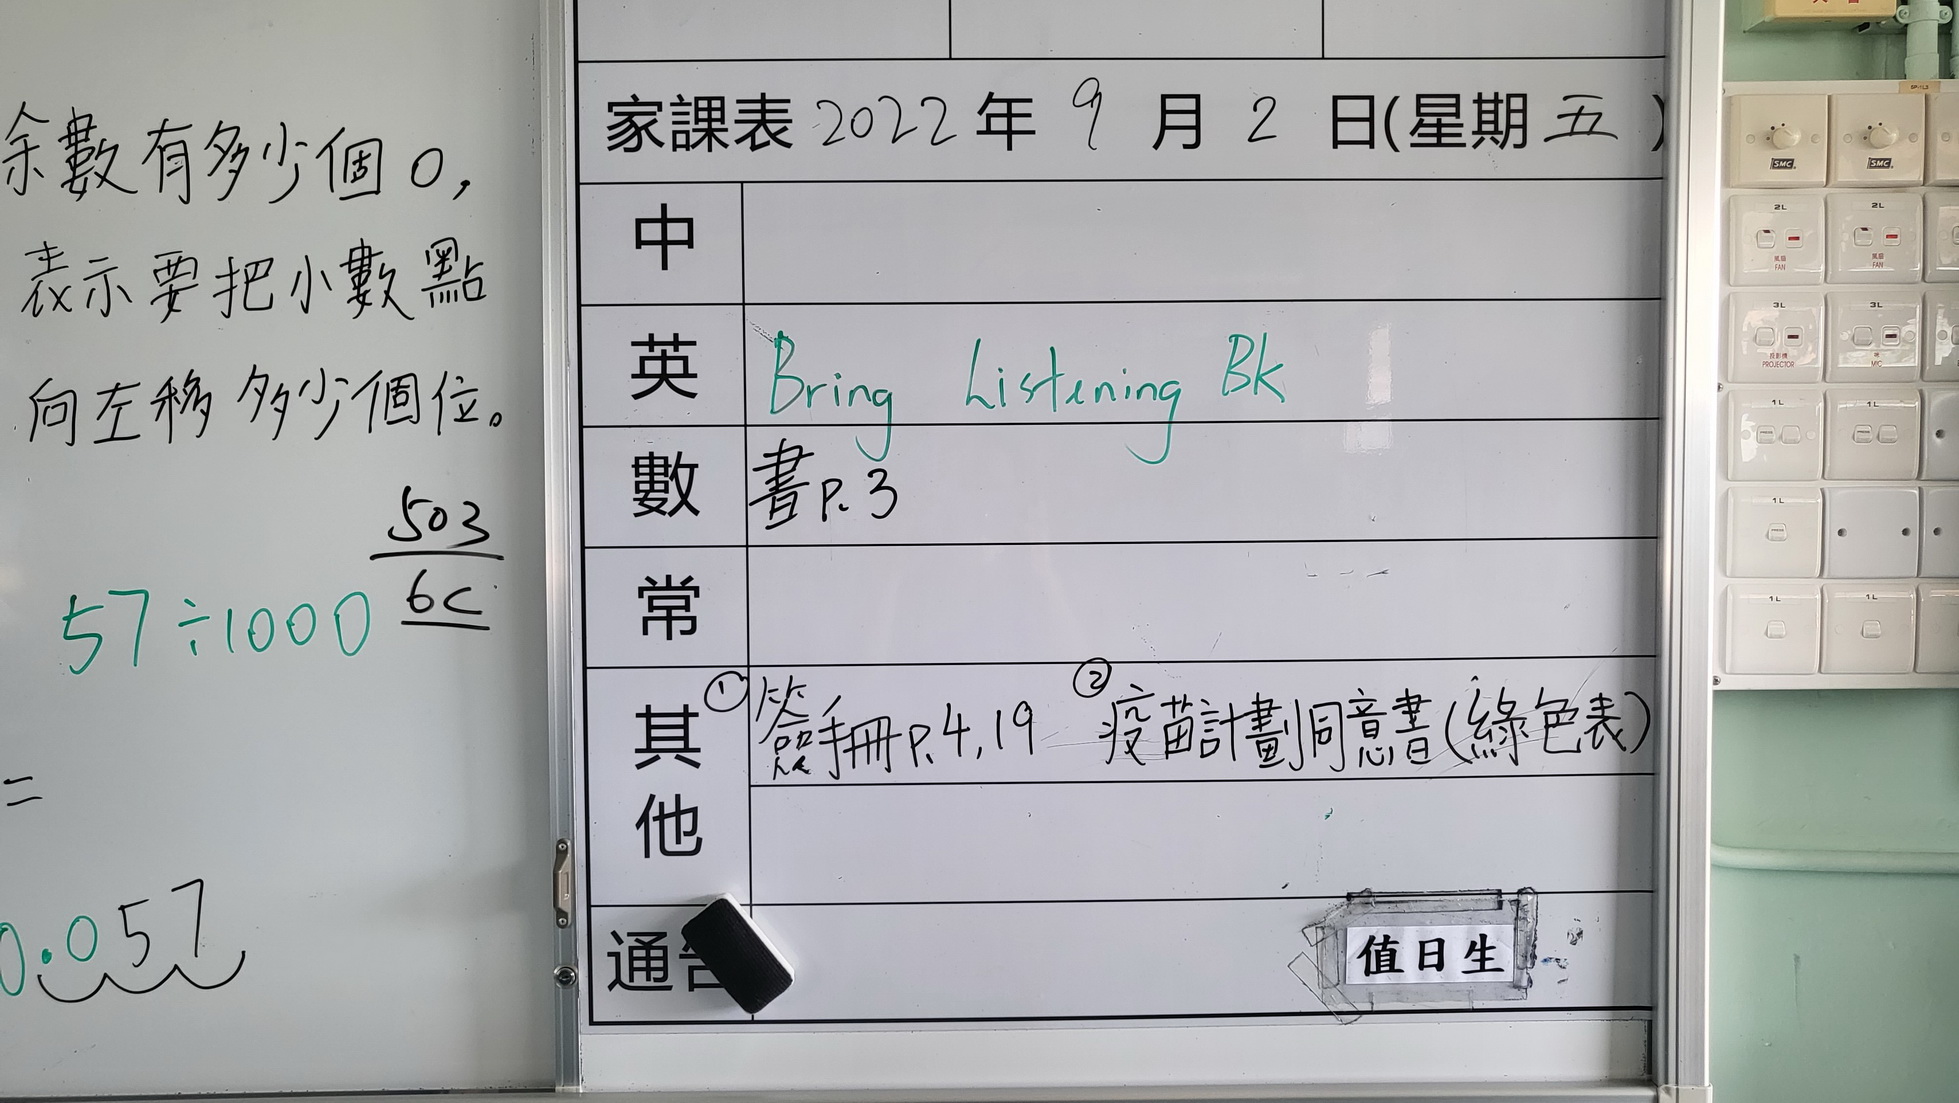 余數有多少個0,
表示要把小數點
向左移多少個位。
503
6C
57÷1000
=
0.057
家課表 2022 年 9 月 2 日(星期 五 )
中
英 Bring Listening Bk
數 書P.3
常
其他 ① 簽手冊P.4,19 ② 疫苗計劃同意書(綠色表)
通告
值日生
SMC SMC
2L 2L
風扇 FAN 風扇 FAN
3L 3L
投影機 PROJECTOR 咪 MIC
1L 1L
1L
1L 1L